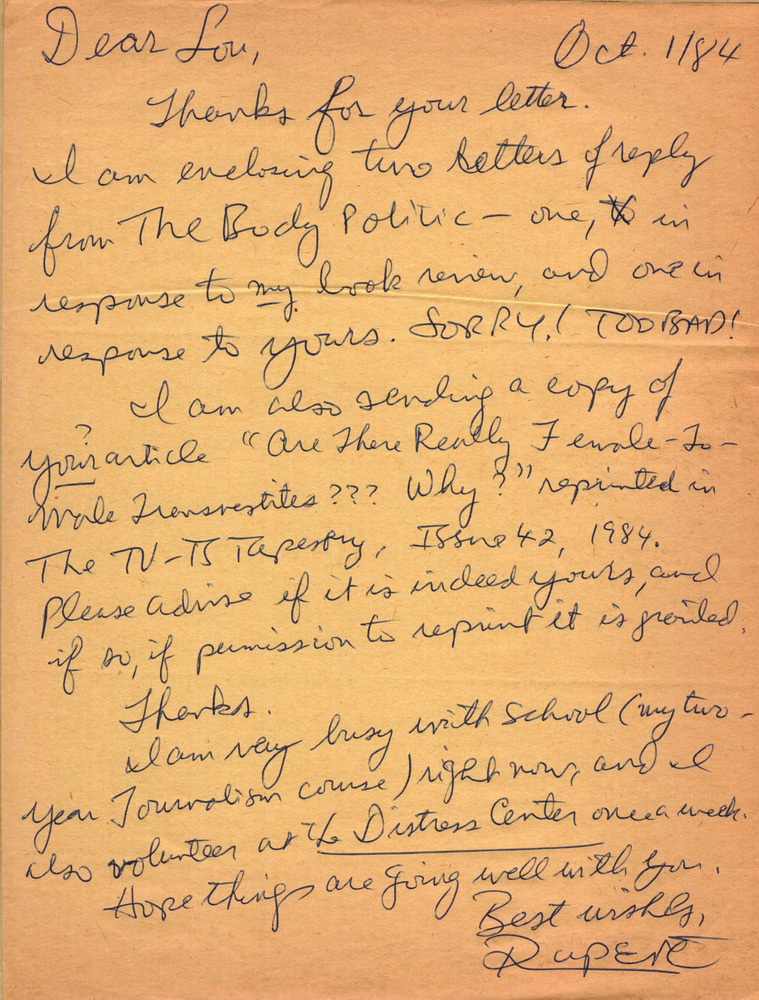 Dear Lou, Oct. 1/84
Thanks for your letter.
I am enclosing two letters of reply
from The Body Politic — one, in
response to my book review, and one in
response to yours. SORRY! TOO BAD!
I am also sending a copy of
?
your article "Are There Really Female-To-
Male Transvestites??? Why?" reprinted in
The TV-TS Tapestry, Issue 42, 1984.
Please advise if it is indeed yours, and
if so, if permission to reprint it is granted.
Thanks.
I am very busy with School (my two-
year Journalism course) right now, and I
also volunteer at the Distress Center once a week.
Hope things are going well with you.
Best wishes,
RUPERT